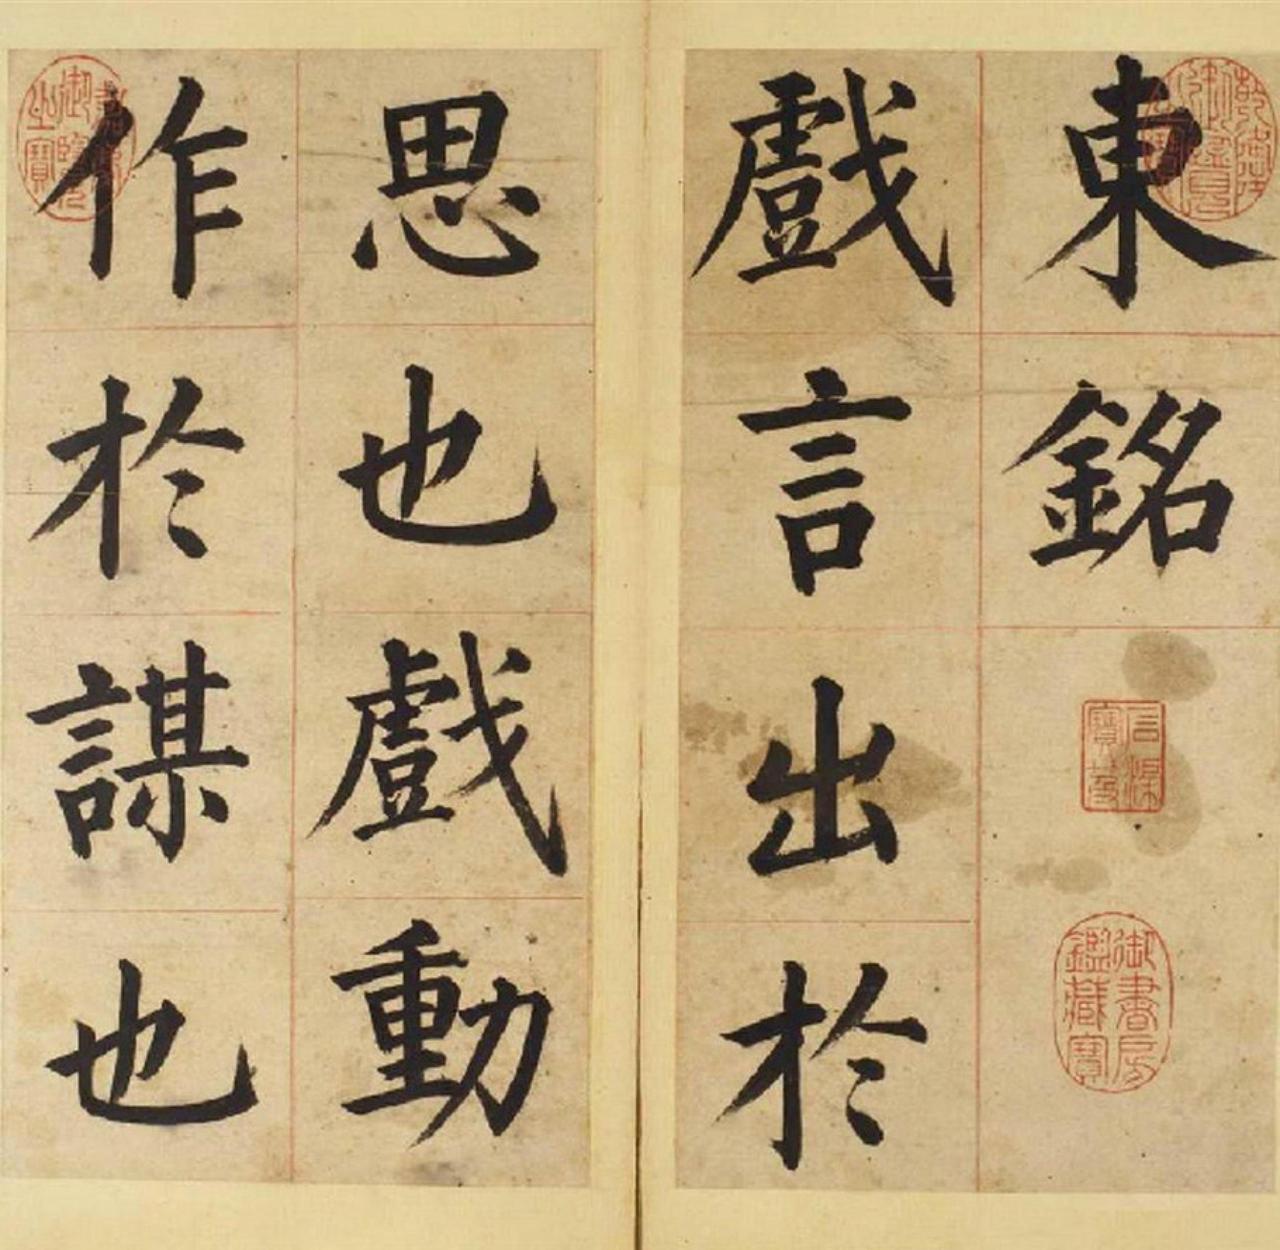 東銘
戲言出於
思也戲動
作於謀也
乾隆御覽之寶
御書房鑑藏寶
嘉慶御覽之寶